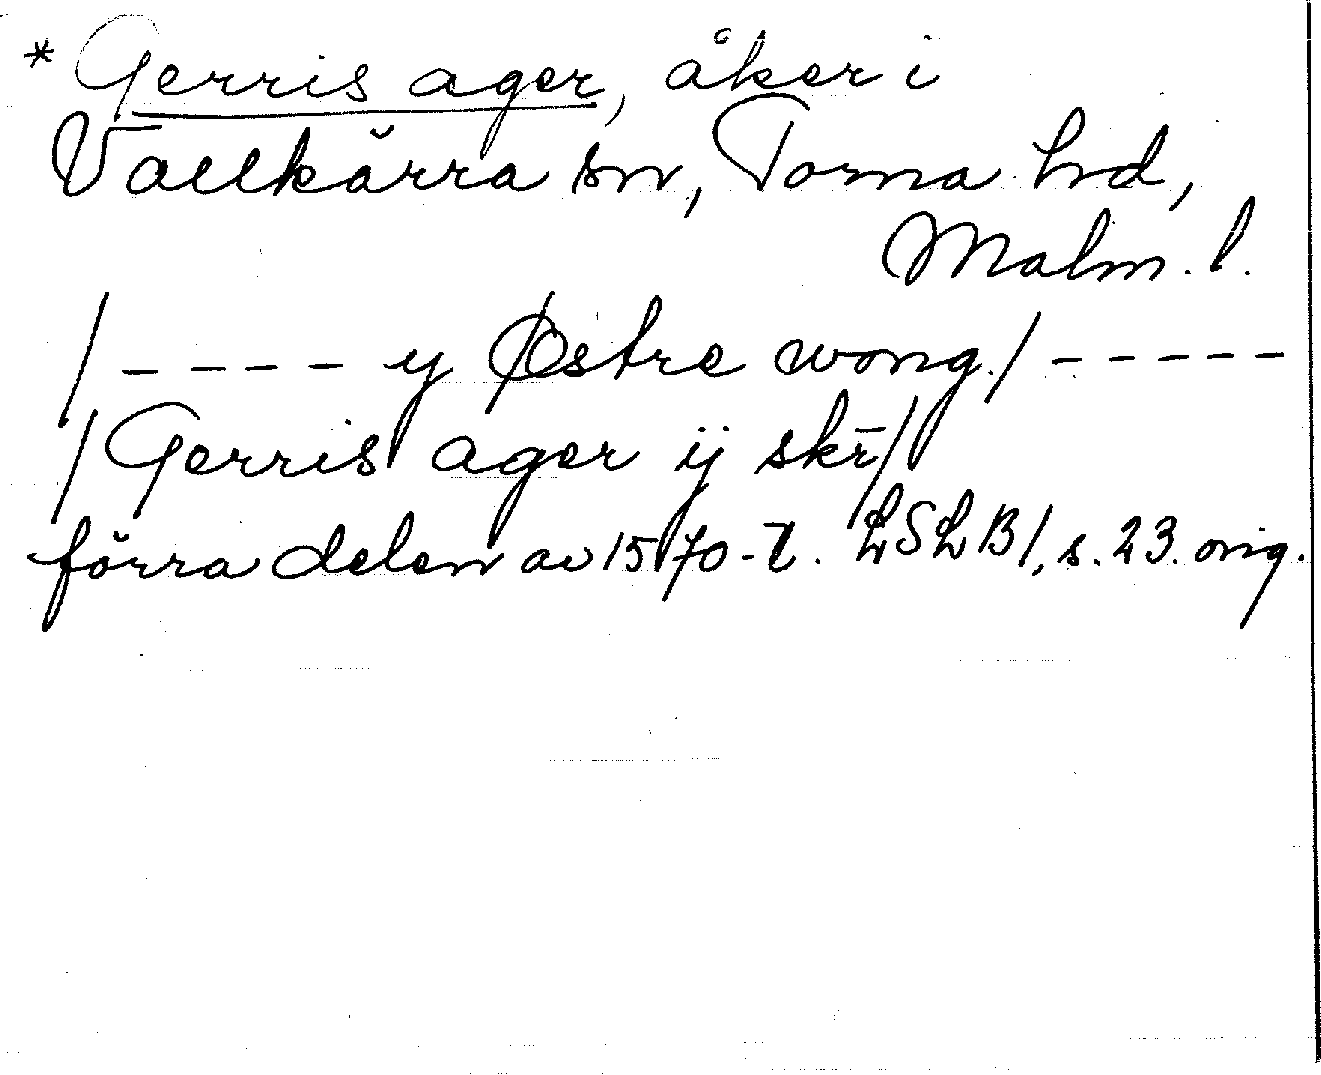 * Gerris ager, åker i
Vallkärra sn, Torna hd,
Malm. l.
/ - - - - y Østre wong / - - - - -
/ Gerris ager ij skr̄ /
förra delen av 1570-t. LSLB 1, s. 23. orig.